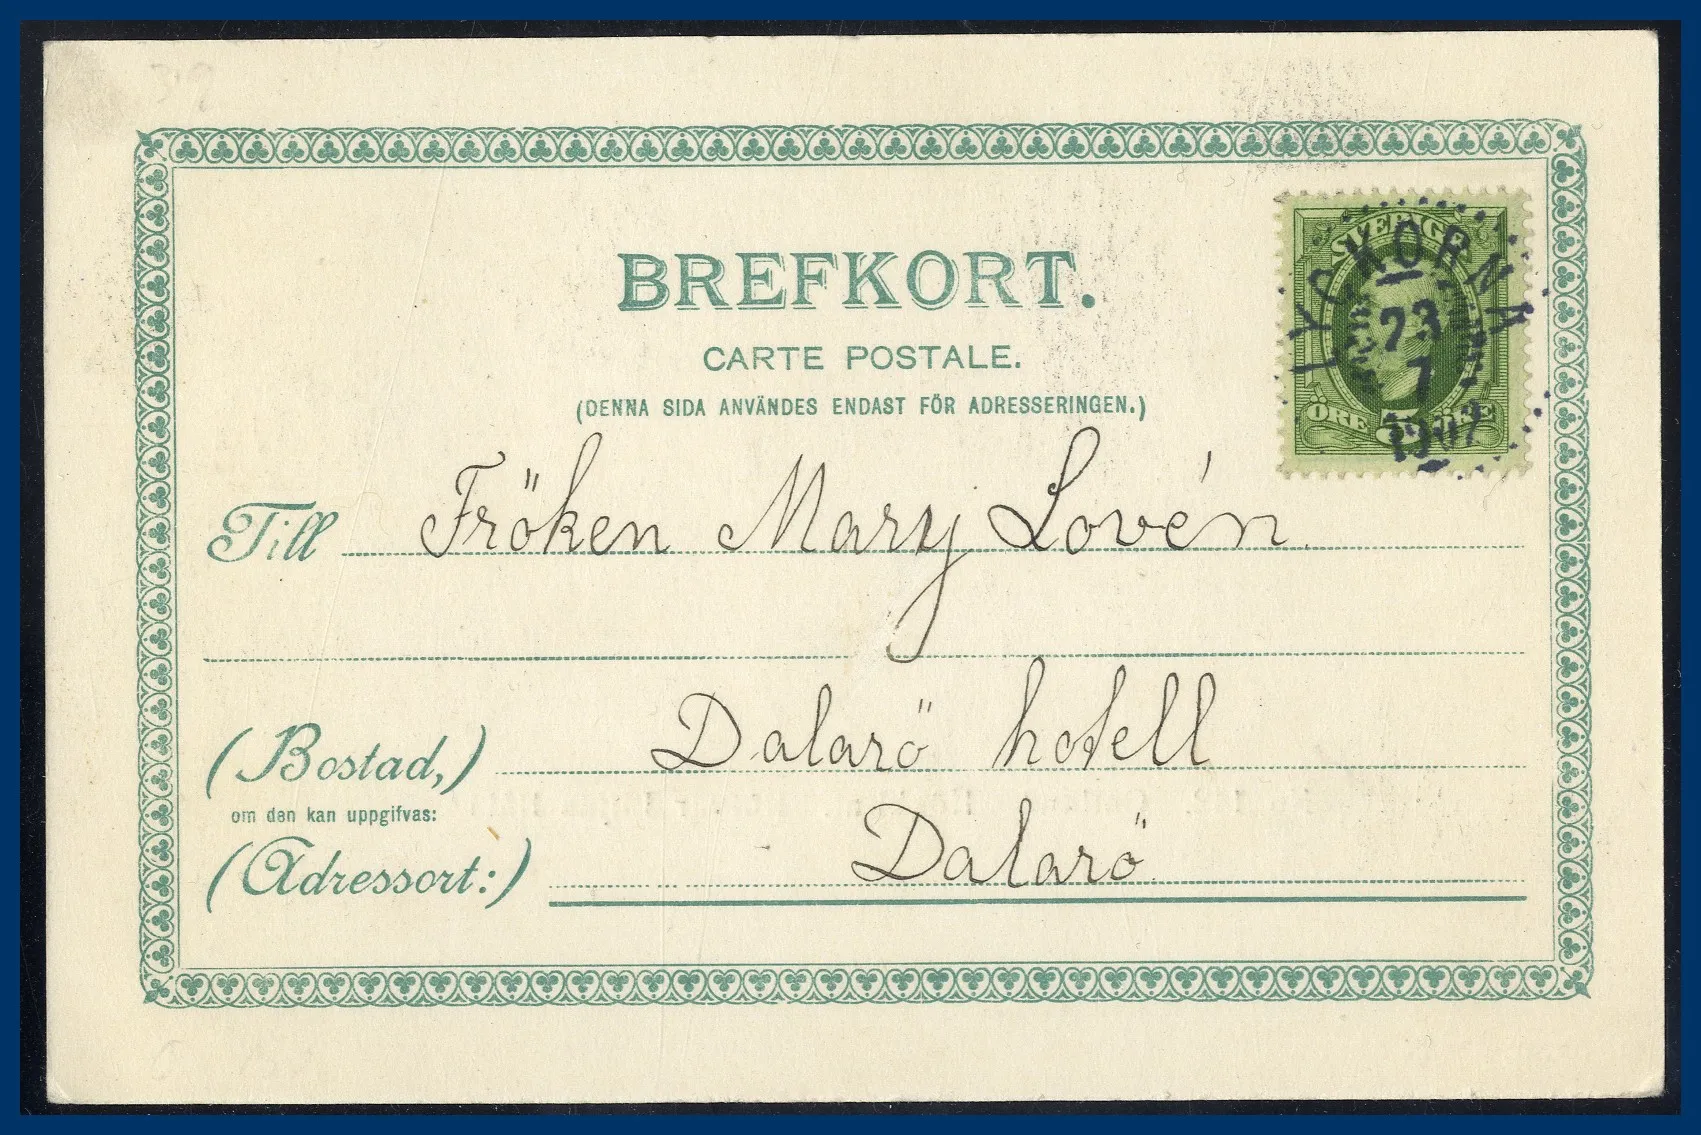 BREFKORT.
CARTE POSTALE.
(DENNA SIDA ANVÄNDES ENDAST FÖR ADRESSERINGEN.)
SVERIGE
ÖRE 5 ÖRE
LYCKORNA
23
7
1907
Till Fröken Mary Lovén
(Bostad,) Dalarö hotell
om den kan uppgifvas:
(Adressort:) Dalarö